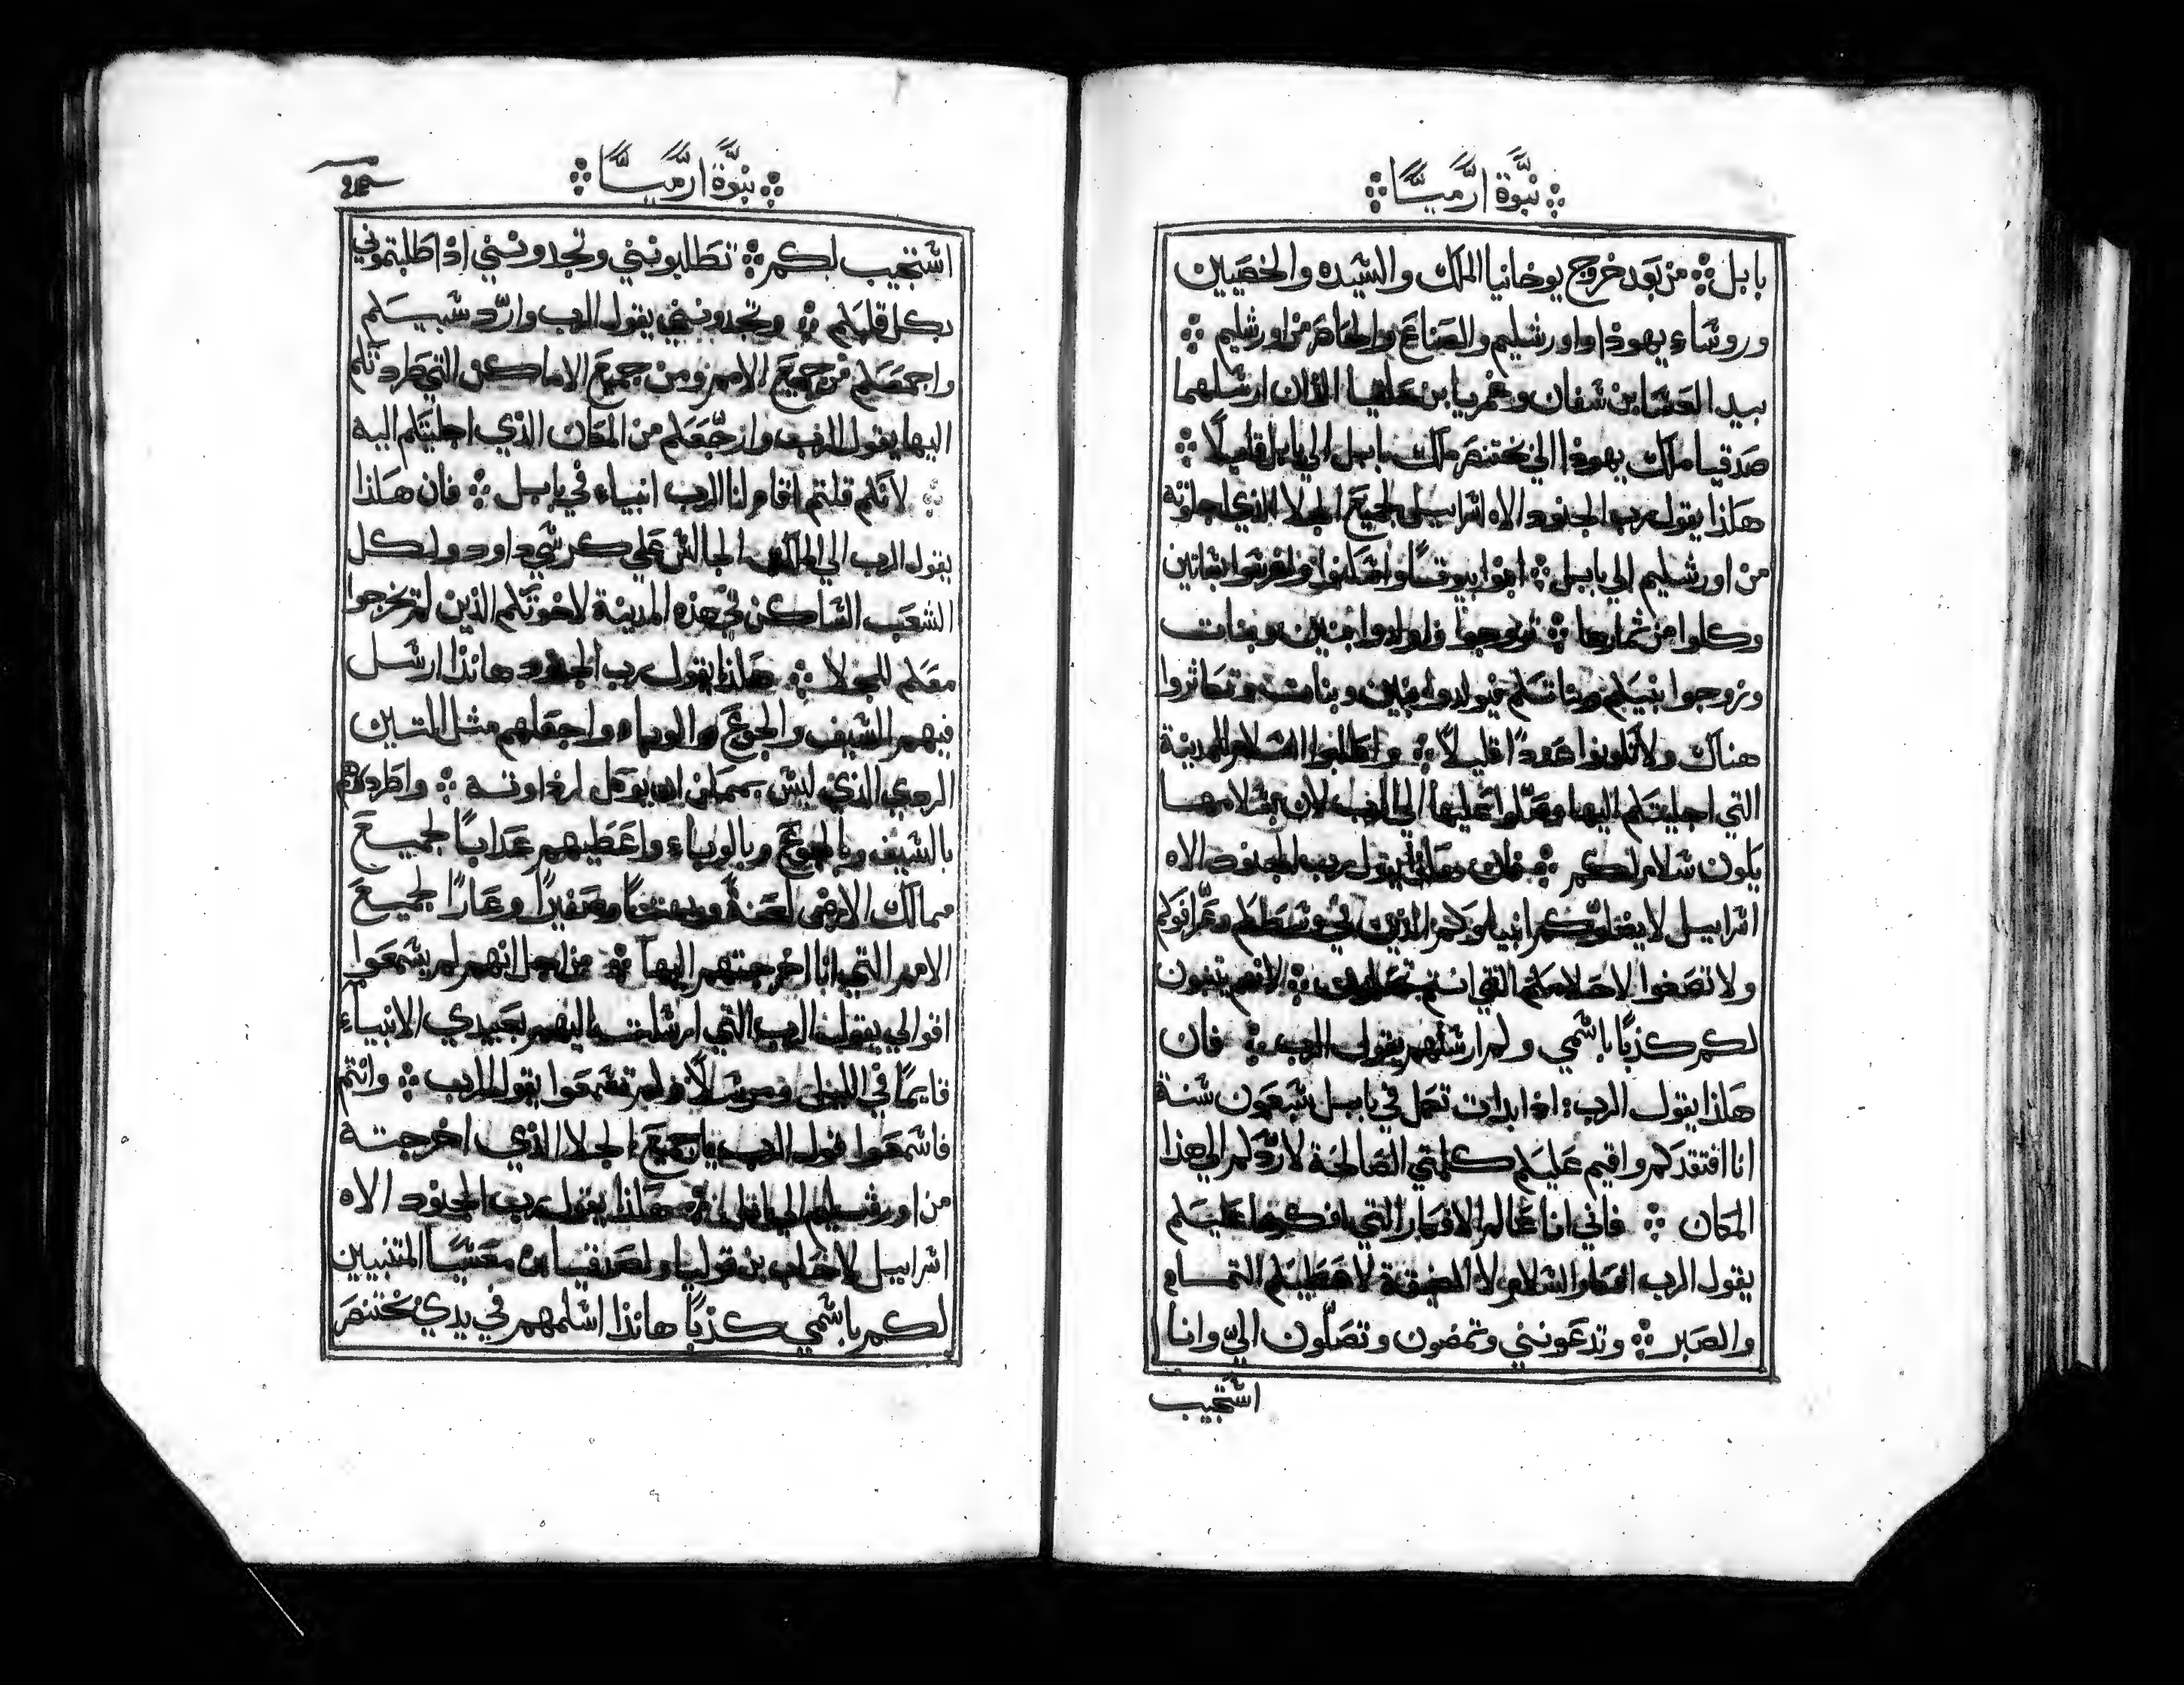 نبوة ارميا
بابل من بعد خروج يوخانيا الملك والسيده والخصيين
وروساء يهودا واورشليم والصناع والحاضر من اورشليم
بيد العسا بن شفان وغمريا بن حلقيا اللذان ارسلهما
صدقيا ملك يهودا الي بختنصر ملك بابل الي بابل قايلًا
هكذا يقول رب الجنود الاه اسراييل لجميع الجلا الذي اجلوته
من اورشليم الي بابل ابنوا بيوتًا واسكنوا واغرسوا بساتين
وكلوا من ثمارها تزوجوا واولدوا بنين وبنات
وزوجوا بنيكم وبناتكم فيولدوا بنين وبنات وتكاثروا
هناك ولا تكونوا عددًا قليلًا واطلبوا السلام للمدينة
التي اجليتكم اليها وصلّوا عليها الي الرب لان بسلامها
يكون سلام لكم فان هكذا يقول رب الجنود الاه
اسراييل لا يضلوكم انبياوكم الذين في وسطكم وعرافوكم
ولا تصغوا لاحلامكم التي انتم تحلمون لانهم يتنبون
لكم كذبًا باسمي ولم ارسلهم يقول الرب فان
هكذا يقول الرب اذا بدات تكمل في بابل سبعون سنة
انا افتقدكم واقيم عليكم كلمتي الصالحة لاردكم الي هذا
المكان فاني انا عالم الافكار التي افكرها عليكم
يقول الرب افكار السلام لا للضيقة لاعطيكم التمام
والصبر وتدعونني وتمضون وتصلّون اليّ وانا
استجيب
نبوة ارميا
استجيب لكم تطلبونني وتجدونني اذا طلبتموني
بكل قلبكم وتجدونني يقول الرب واردّ سبيكم
واجمعكم من جميع الامم ومن جميع الاماكن التي طردتكم
اليها يقول الرب وارجّعكم من المكان الذي اجليتكم اليه
لانكم قلتم اقام لنا الرب انبياء في بابل فان هكذا
يقول الرب الي الملك الجالس علي كرسي داود ولكل
الشعب الساكن في هذه المدينة لاخوتكم الذين لم يخرجوا
معكم للجلا هكذا يقول رب الجنود هانذا ارسل
فيهم السيف والجوع والوباء واجعلهم مثل التين
الردي الذي ليس بممكن ان يوكل لرداوته واطردهم
بالسيف وبالجوع وبالوباء واعطيهم عذابًا لجميع
ممالك الارض لعنةً وبهتًا وصفيرًا وعارًا لجميع
الامم التي انا اخرجتهم اليها من اجل انهم لم يسمعوا
اقوالي يقول الرب التي ارسلت اليهم بعبيدي الانبياء
قايمًا في الليل ومرسلًا ولم تسمعوا يقول الرب وانتم
فاسمعوا قول الرب يا جميع الجلا الذي اخرجته
من اورشليم الي بابل هكذا يقول رب الجنود الاه
اسراييل لاخاب بن قوليا ولصدقيا بن معسيا المتنبيين
لكم باسمي كذبًا هانذا اسلمهم في يدي بختنصر